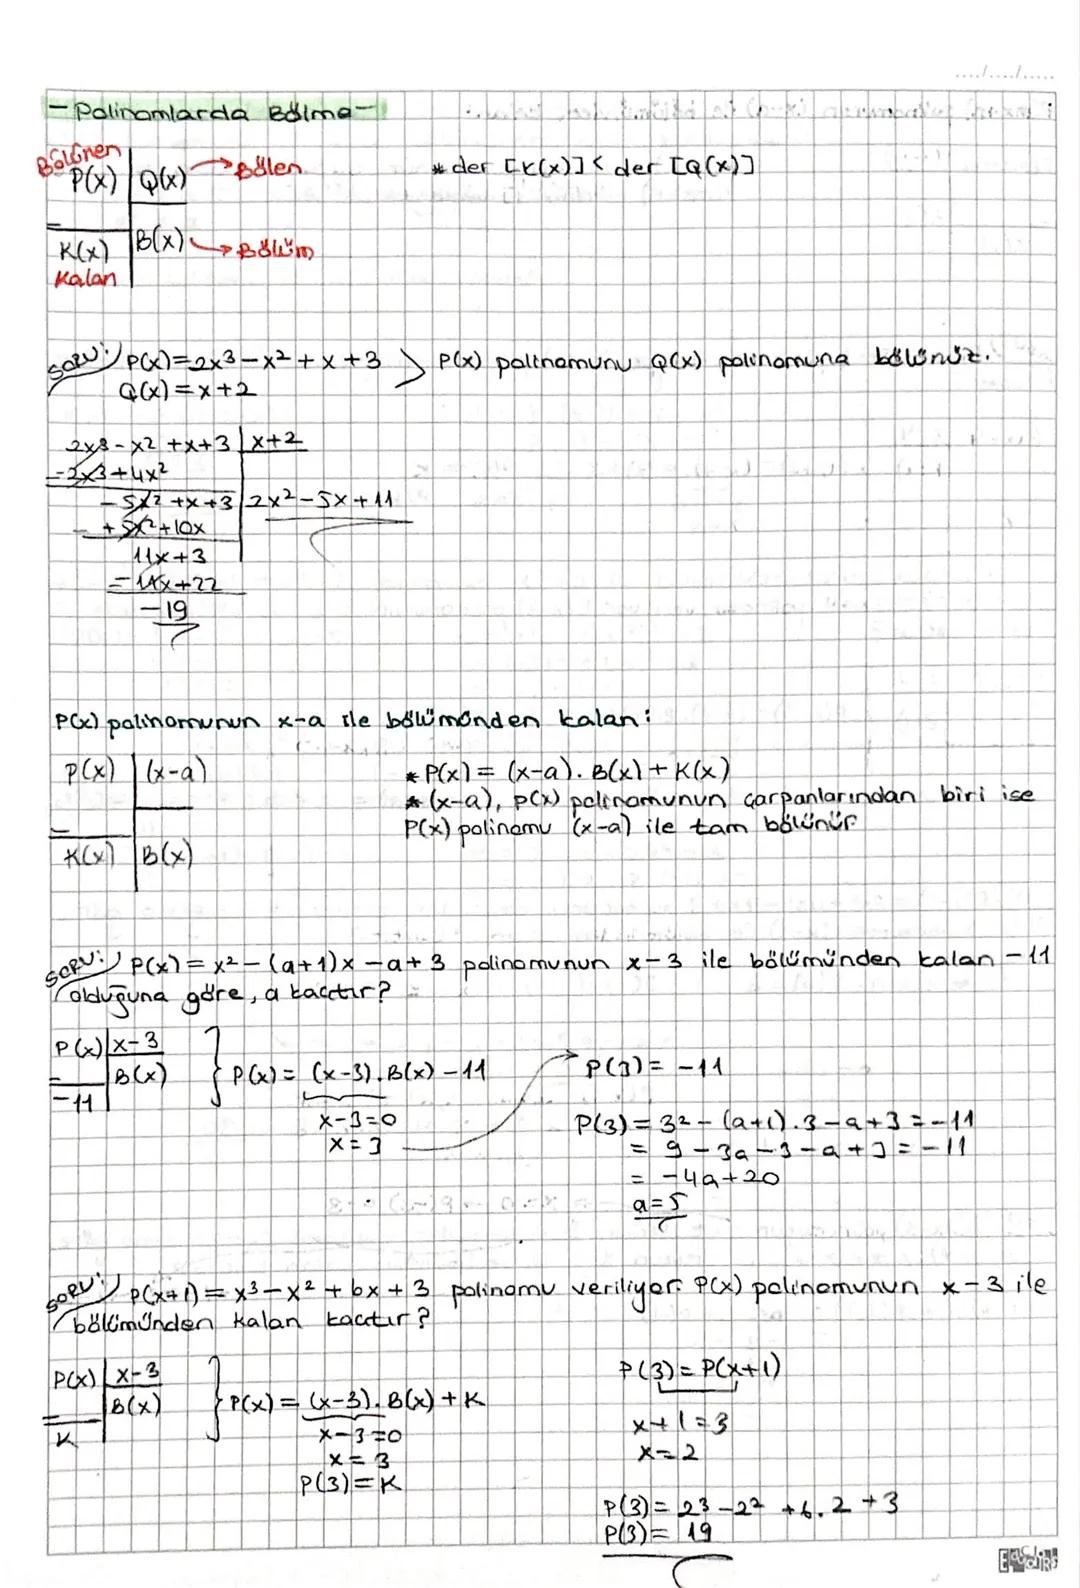 - Polinomlarda Bölme -
Bölünen
P(x) Q(x) → Bölen
* der [K(x)] < der [Q(x)]
K(x) B(x) → Bölüm
Kalan
SORU: P(x) = 2x³ - x² + x + 3 > P(x) polinomunu Q(x) polinomuna bölünüz.
Q(x) = x + 2
2x³ - x² + x + 3 x + 2
- 2x³ + 4x²
- 5x² + x + 3 2x² - 5x + 11
+ 5x² + 10x
11x + 3
= 11x + 22
- 19
P(x) polinomunun x-a ile bölümünden kalan:
P(x) (x-a)
K(x) B(x)
* P(x) = (x-a). B(x) + K(x)
* (x-a), P(x) polinomunun çarpanlarından biri ise
P(x) polinomu (x-a) ile tam bölünür
SORU: P(x) = x² - (a+1)x - a + 3 polinomunun x-3 ile bölümünden kalan -11
olduğuna göre, a kaçtır?
P(x) x-3
B(x)
-11
} P(x) = (x-3). B(x) - 11
x-3=0
x = 3
P(3) = -11
P(3) = 3² - (a+1).3 - a + 3 = -11
= 9 - 3a - 3 - a + 3 = -11
= -4a + 20
a = 5
SORU: P(x+1) = x³ - x² + 6x + 3 polinomu veriliyor. P(x) polinomunun x-3 ile
bölümünden kalan kaçtır?
P(x) x-3
B(x)
K
} P(x) = (x-3). B(x) + K
x-3=0
x = 3
P(3) = K
P(3) = P(x+1)
x+1=3
x=2
P(3) = 2³ - 2² + 6.2 + 3
P(3) = 19